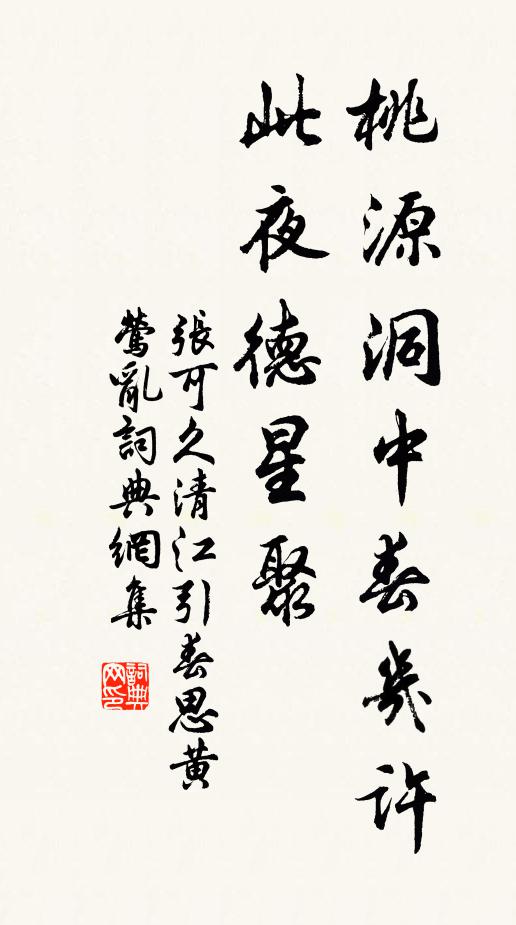 桃源洞中春幾許
此夜德星聚
張可久清江引春思黃
鶯亂詞典網集
詞典网印